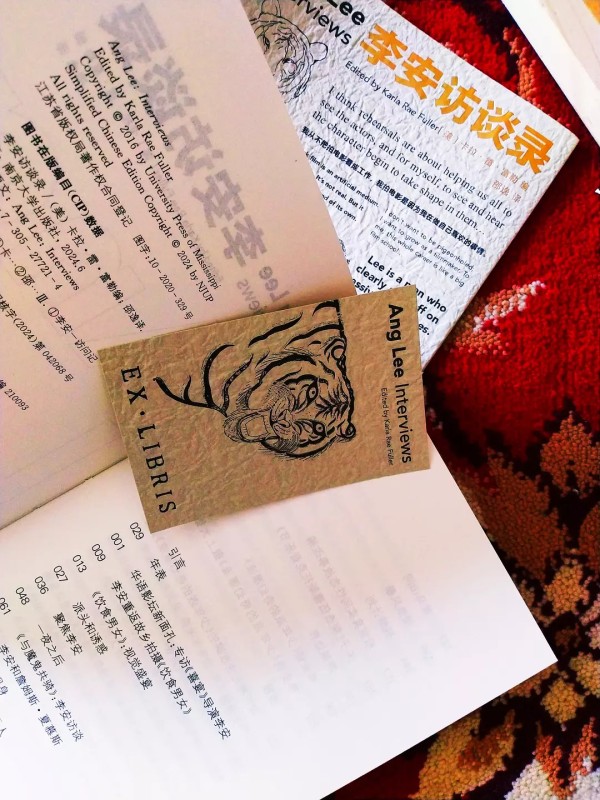 Lee
Interviews
李安访谈录
Edited by Karla Rae Fuller
I think rehearsals are about helping us all to
see the actors, and for myself, to see and hear
the character begin to take shape in them.
I don't want to be pigeonholed.
I want to grow as a filmmaker. To
me, this whole career is like a big
film school.
Lee is a man who
clearly
off on
Ang Lee: Interviews
Edited by Karla Rae Fuller
Copyright © 2016 by University Press of Mississippi
Simplified Chinese Edition Copyright © 2024 by NJUP
All rights reserved
江苏省版权局著作权合同登记 图字:10-2020-329号
图书在版编目(CIP)数据
李安访谈录 / (美) 卡拉·雷·富勒编;邵逸译.
南京大学出版社, 2024.6
文: Ang Lee: Interviews
7-305-27721-4
①卡… ②邵… Ⅲ. ①李安-访问记
字(2024)第042068号
210093
Ang Lee Interviews
Edited by Karla Rae Fuller
EX·LIBRIS
引言
年表
029 华语影坛新面孔:专访《喜宴》导演李安
001 李安重返故乡拍摄《饮食男女》
009 《饮食男女》:视觉盛宴
013 派头和诱惑
027 聚焦李安
036 一夜之后
048 《与魔鬼共骑》:李安访谈
061 李安和詹姆斯·夏慕斯